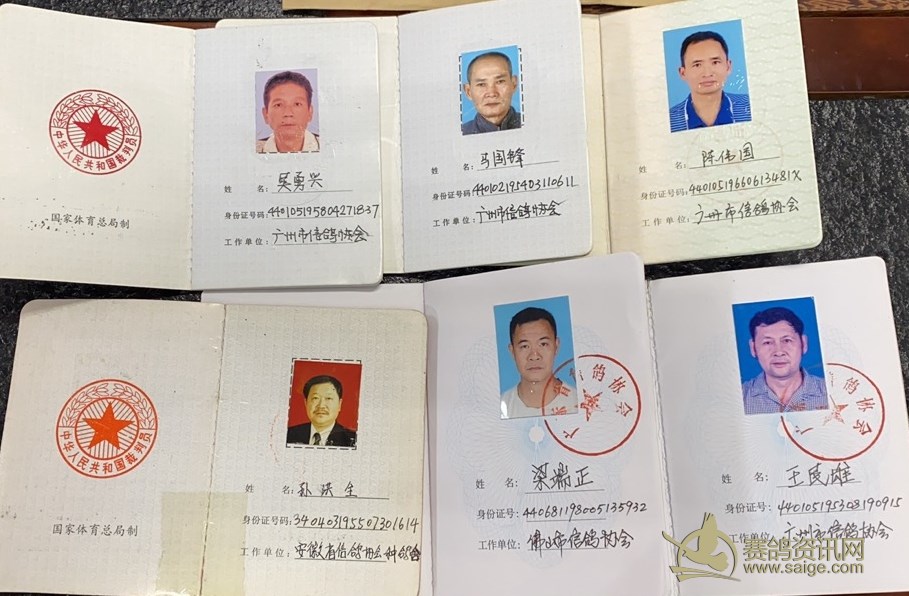 中华人民共和国裁判员
国家体育总局制
姓 名: 吴勇兴
身份证号码: 440105195804271837
工作单位: 广州市信鸽协会
姓 名: 马国锋
身份证号码: 440102195403110611
工作单位: 广州市信鸽协会
姓 名: 陈伟国
身份证号码: 44010519660613481X
工作单位: 广州市信鸽协会
中华人民共和国裁判员
国家体育总局制
姓 名: 孙洪生
身份证号码: 340403195507301614
工作单位: 安徽省信鸽协会种鸽
姓 名: 梁端正
身份证号: 440681198005135932
工作单位: 佛山市信鸽协会
广东省信鸽协会
姓 名: 王民雄
身份证号: 440105195308190915
工作单位: 广州市信鸽协会
赛鸽资讯网
www.saige.com